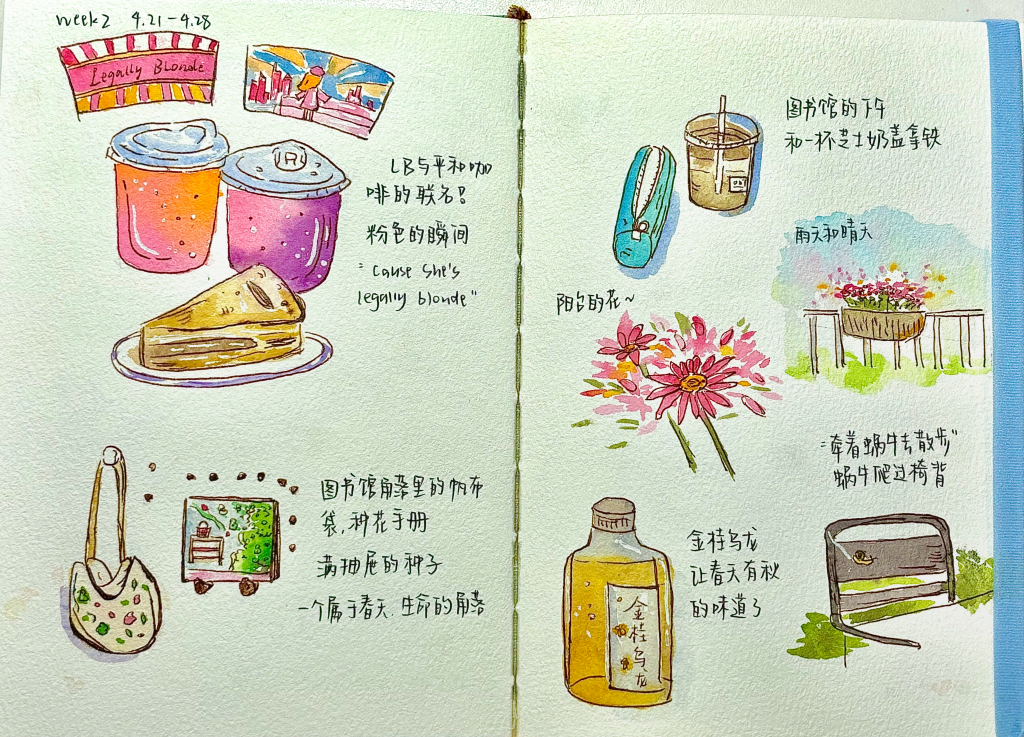 week2 4.21-4.28
Legally Blonde
LB与平和咖
啡的联名!
粉色的瞬间
"cause she's
legally blonde"
图书馆角落里的帆布
袋,种花手册
满抽屉的种子
一个属于春天、生命的角落
图书馆的下午
和一杯芝士奶盖拿铁
雨天和晴天
阳台的花~
"牵着蜗牛去散步"
蜗牛爬过椅背
金桂乌龙
让春天有秋
的味道了
金桂乌龙